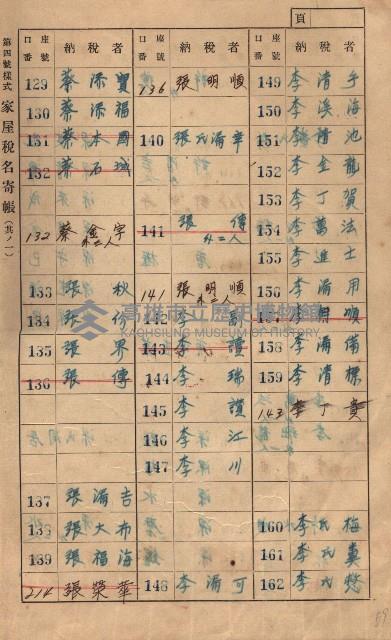 頁
第四號樣式 家屋稅名寄帳 (其ノ一)
口座番號 納稅者
129 蔡添寶
130 蔡添福
131 蔡木國
132 蔡石城
132 蔡金字 外二人
133 張秋
134 張份
135 張界
136 張傳
137 張滿吉
138 張大布
139 張福海
214 張榮華
口座番號 納稅者
136 張明順
140 張氏滿幸
141 張傳 外二人
141 張明順 外二人
142 李
143 李讚
144 李瑞
145 李讚
146 李江
147 李川
148 李滿可
口座番號 納稅者
149 李清手
150 李溪海
151 李清池
152 李金龍
153 李丁賀
154 李萬法
155 李進士
156 李滿用
157 李明順
158 李滿備
159 李清標
143 李丁貴
160 李氏梅
161 李氏
162 李氏愁
高雄市立歷史博物館
KAOHSIUNG MUSEUM OF HISTORY